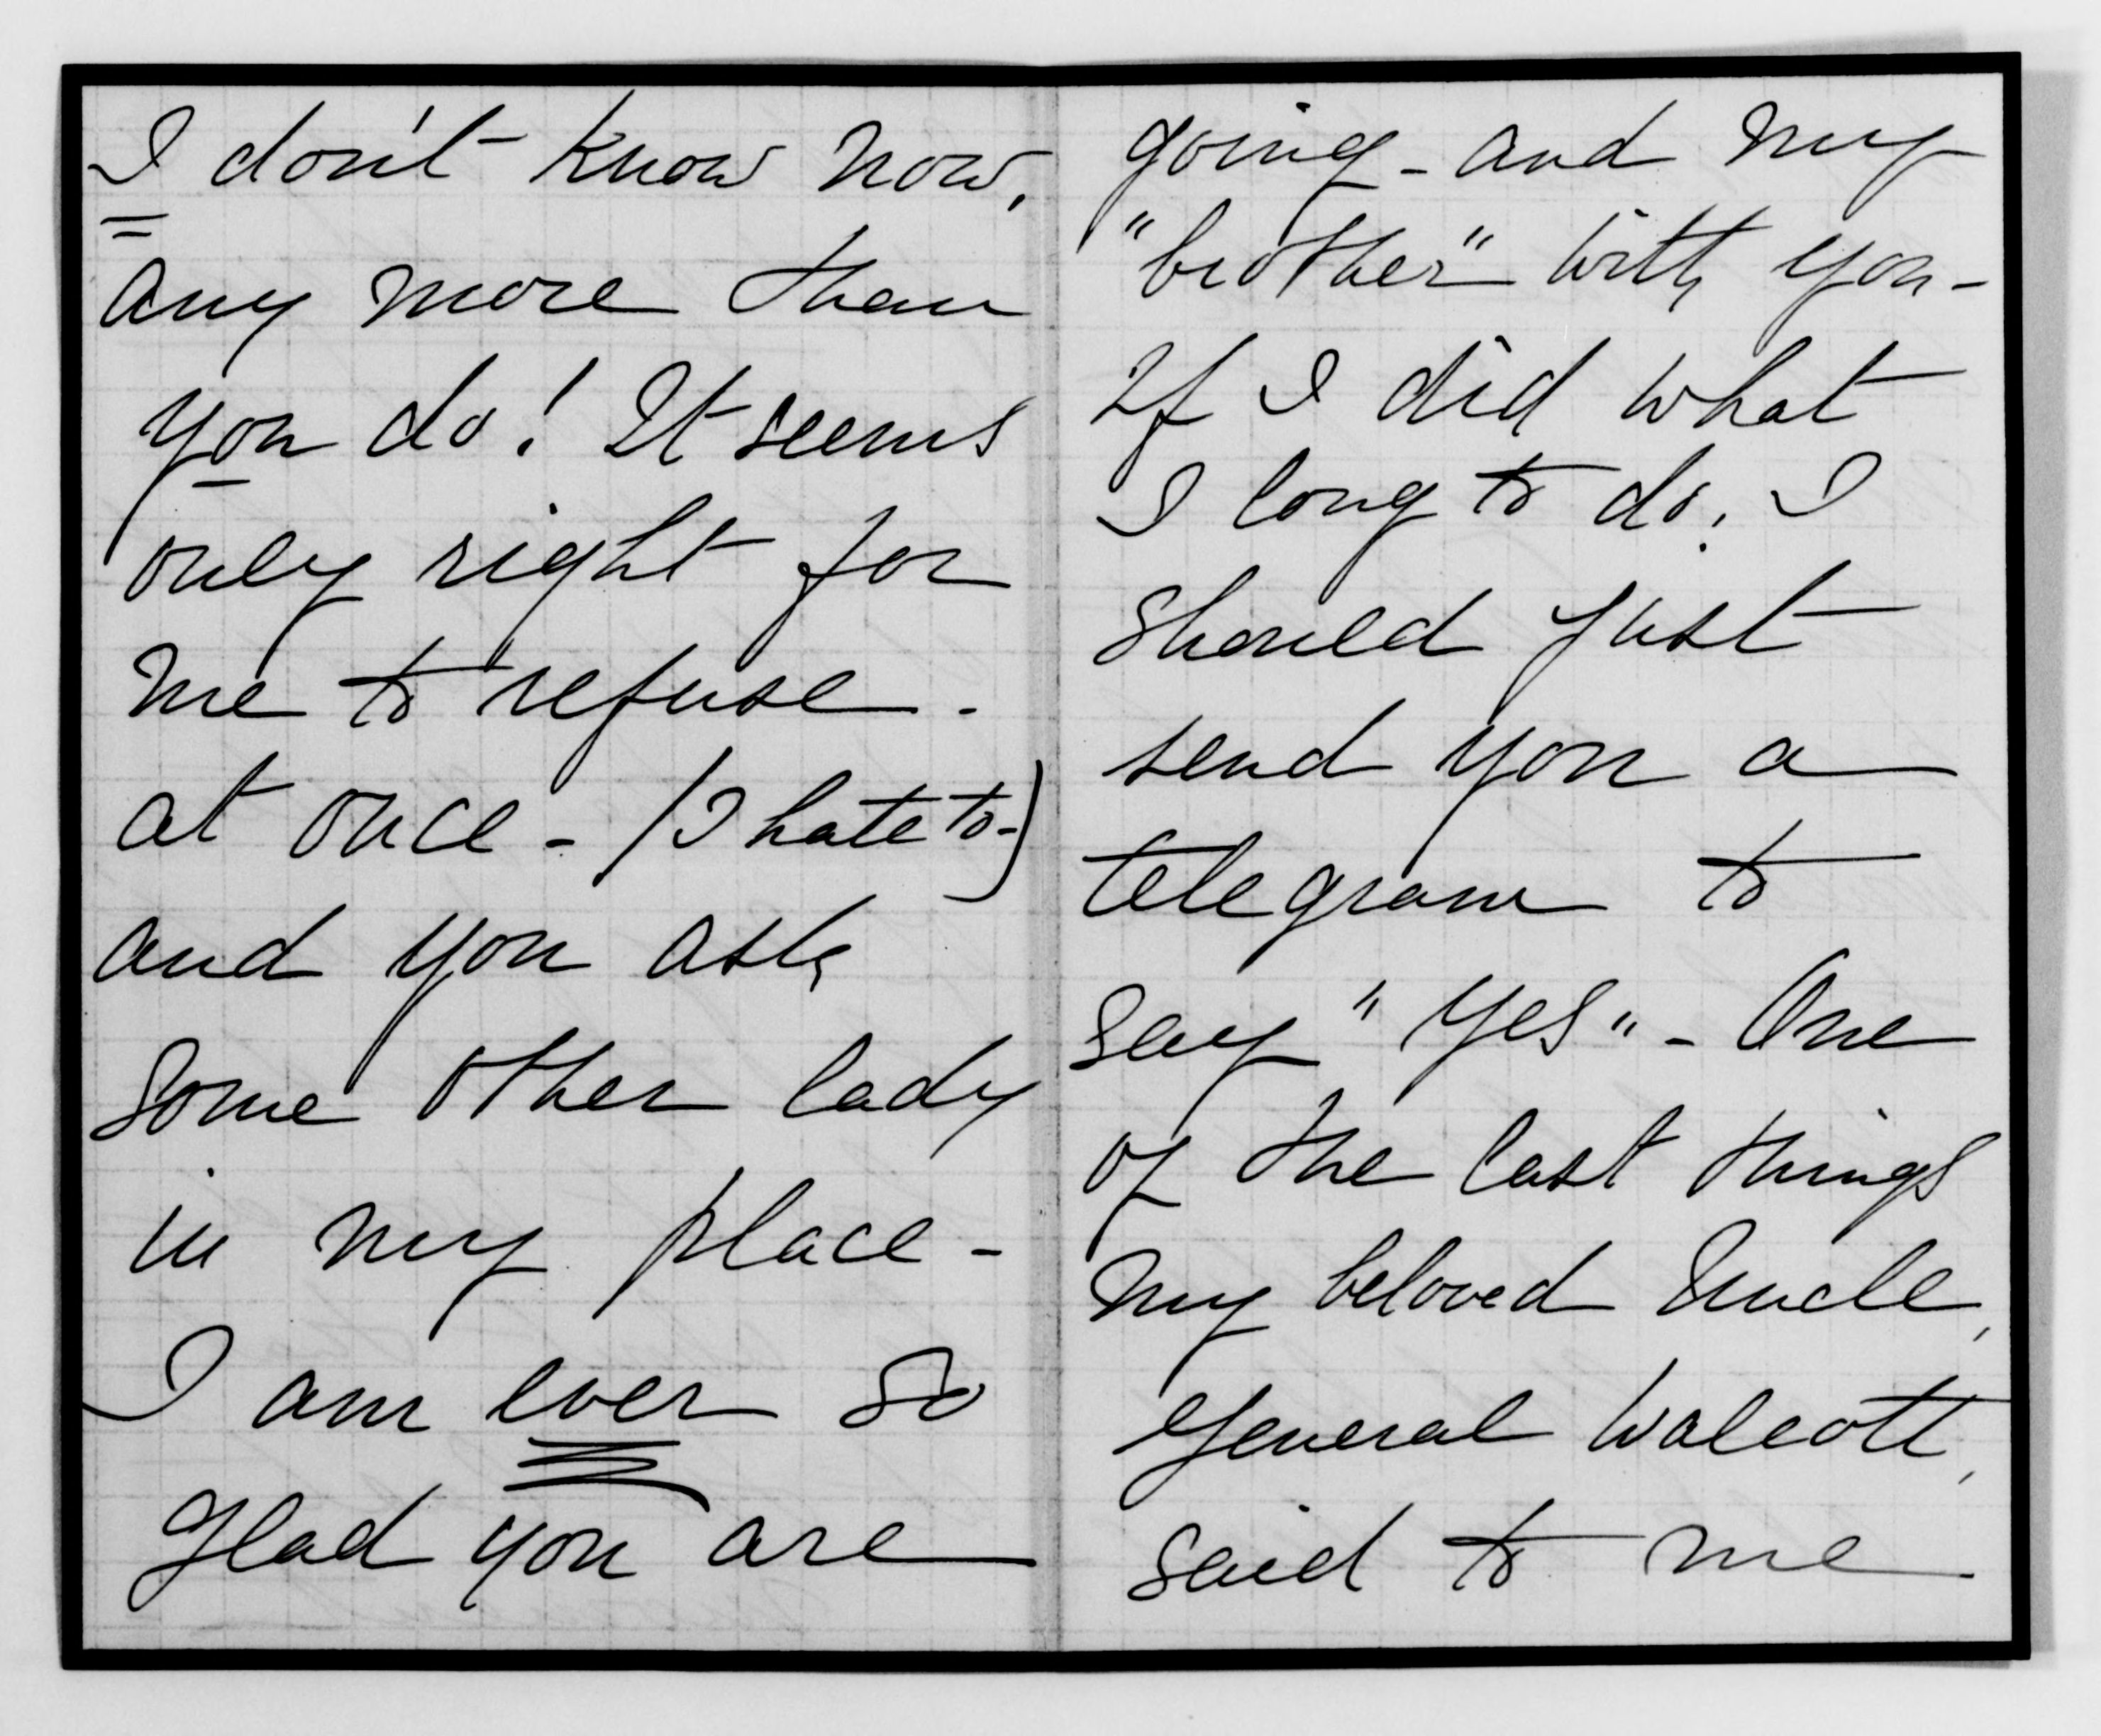 I don't know now,
any more than
you do! It seems
only right for
me to refuse -
at once - (I hate to -)
and you ask
some other lady
in my place -
I am ever so
glad you are
going - and my
"brother" with you -
If I did what
I long to do, I
should just
send you a
telegram to
say "Yes" - One
of the last things
my beloved Uncle,
General Walcott,
said to me